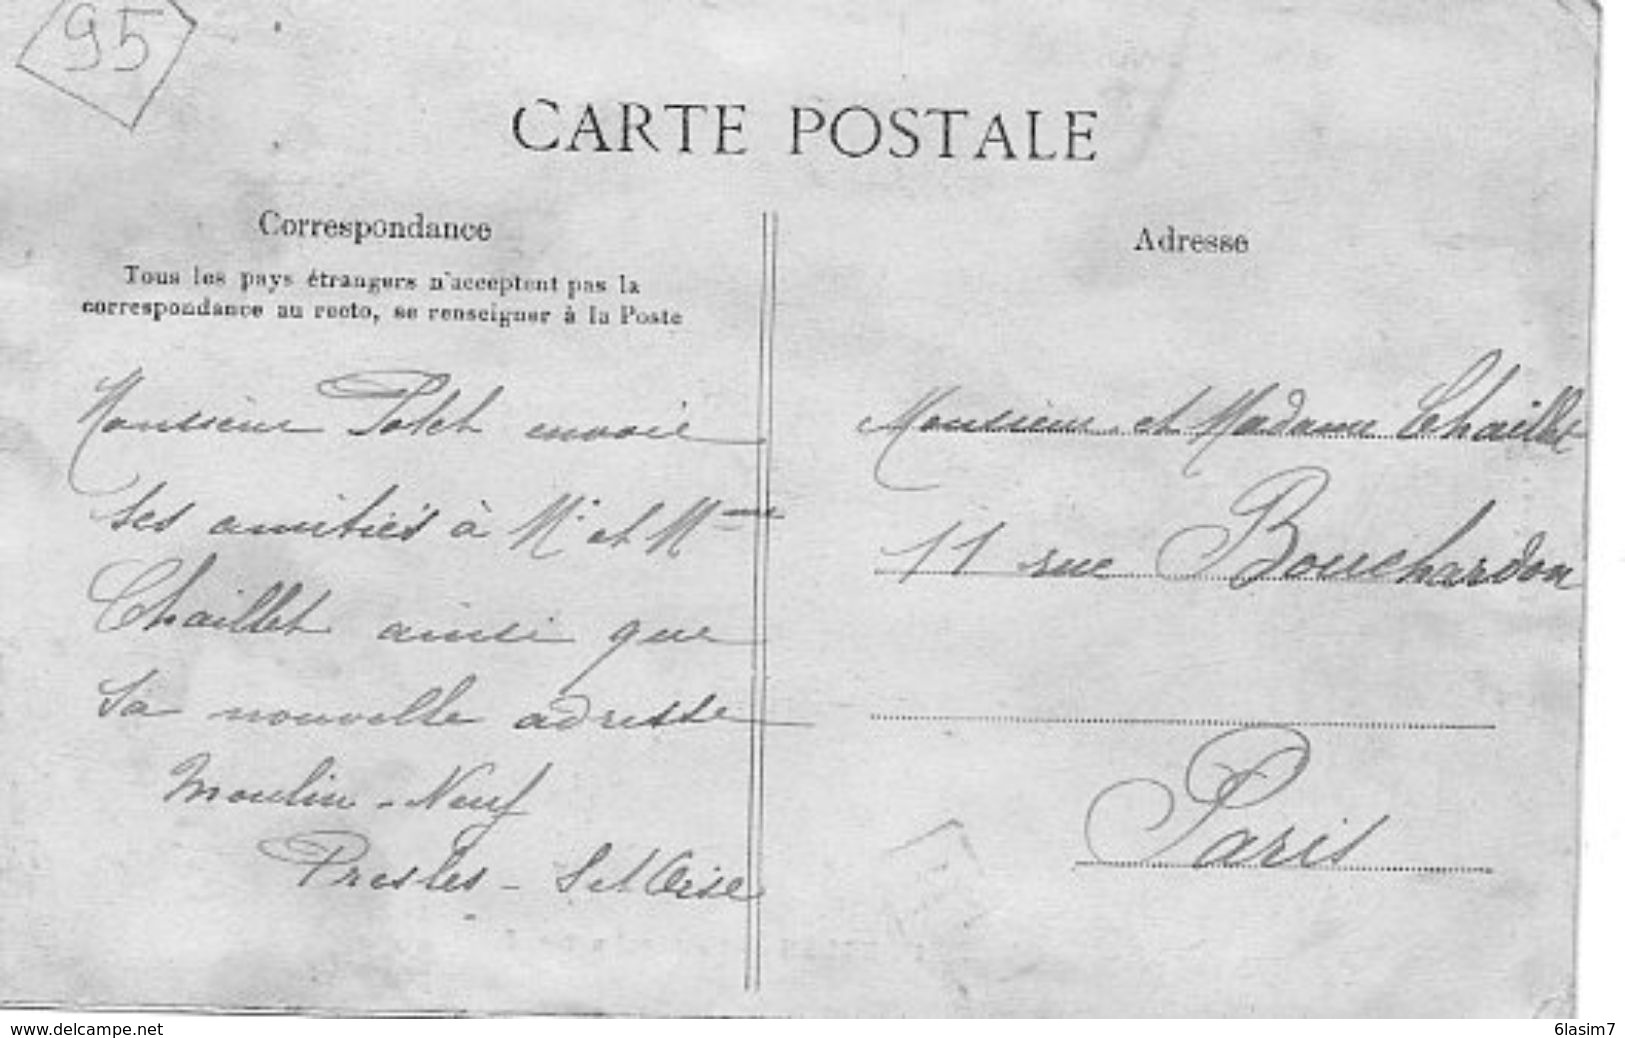 95
CARTE POSTALE
Correspondance
Tous les pays étrangers n'acceptent pas la
correspondance au recto, se renseigner à la Poste
Monsieur Potet envoie
ses amitiés à Mr et Mme
Chaillet ainsi que
sa nouvelle adresse
Moulin-Neuf
Presles - S et Oise
Adresse
Monsieur et Madame Chaillet
11 rue Bouchardon
Paris
www.delcampe.net
6lasim7